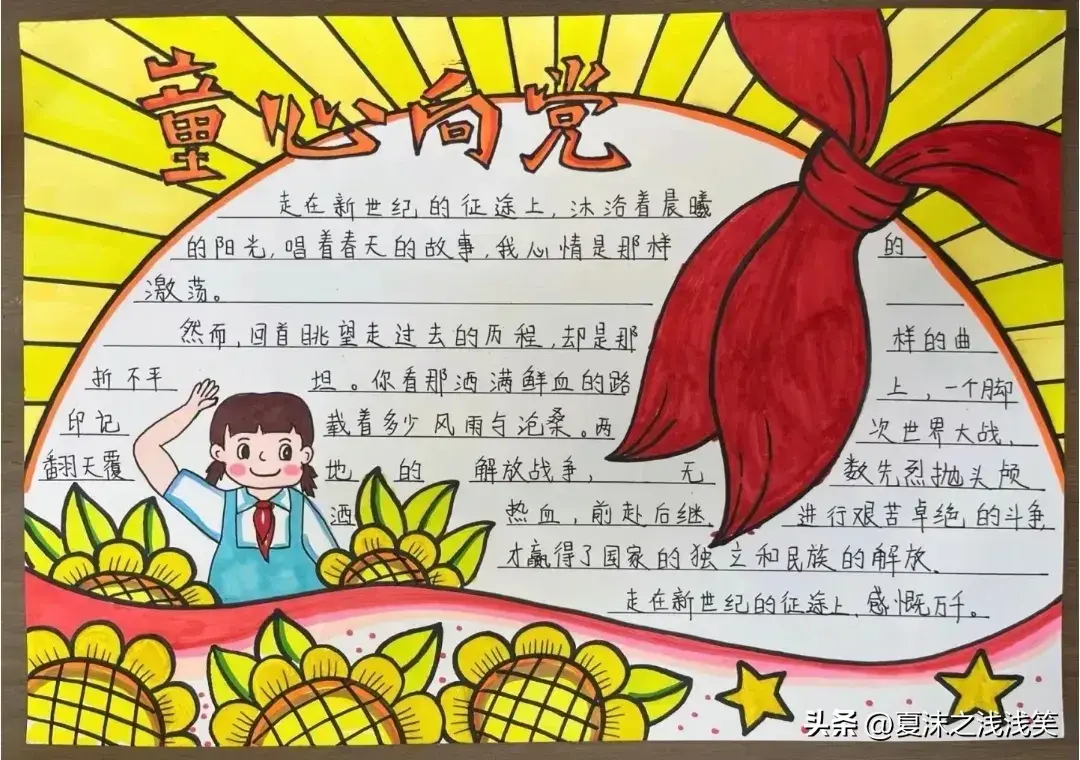 童心向党
走在新世纪的征途上，沐浴着晨曦
的阳光，唱着春天的故事，我心情是那样 的
激荡。
然而，回首眺望走过去的历程，却是那 样的曲
折不平 坦。你看那洒满鲜血的路 上，一个脚
印记 载着多少风雨与沧桑。两 次世界大战，
翻天覆 地的解放战争，无 数先烈抛头颅
洒 热血，前赴后继，进行艰苦卓绝的斗争
才赢得了国家的独立和民族的解放。
走在新世纪的征途上，感慨万千。
头条 @夏沫之浅浅笑